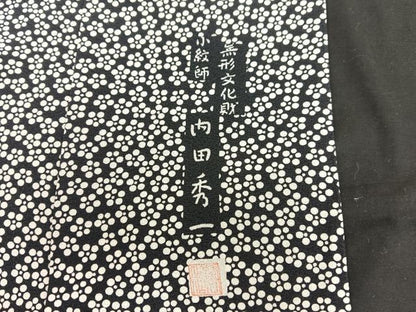 無形文化財
小紋師
内田秀一